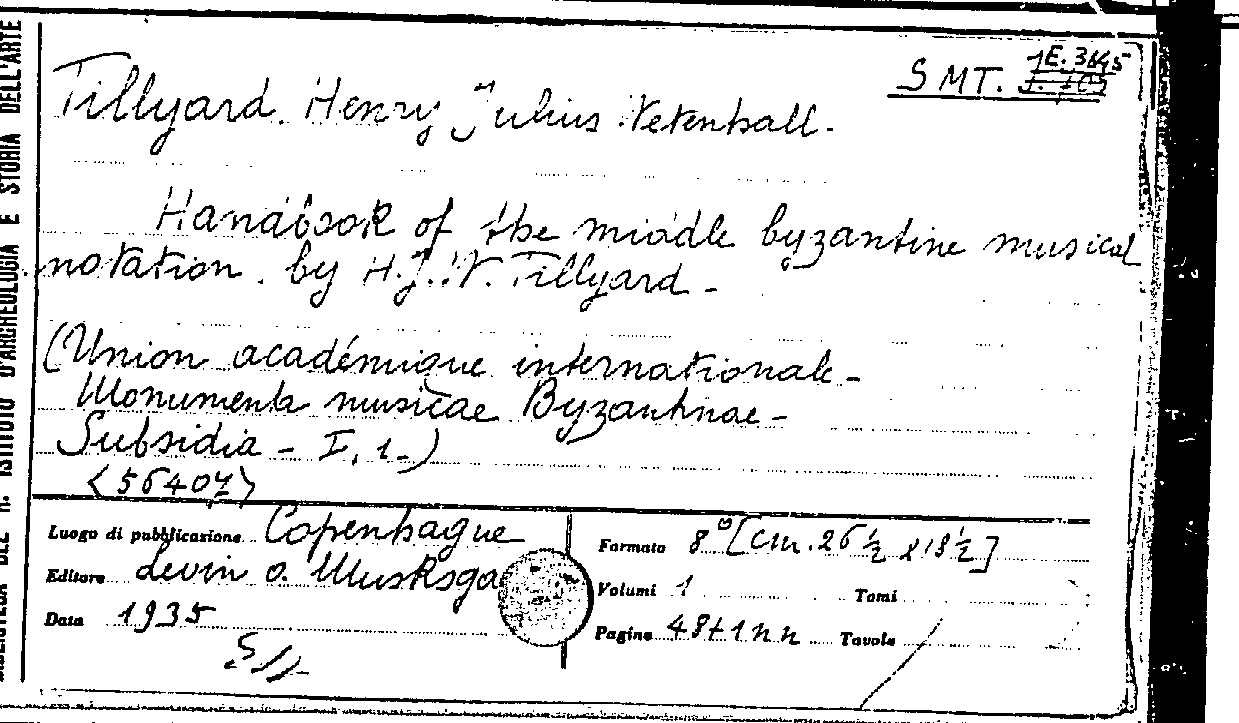 BIBLIOTECA DEL R. ISTITUTO D'ARCHEOLOGIA E STORIA DELL'ARTE
SMT. 1E. 3645
Tillyard. Henry Julius Wetenhall.
Handbook of the middle byzantine musical
notation. by H.J.W. Tillyard -
(Union académique internationale -
Monumenta musicae Byzantinae -
Subsidia - I, 1.)
<56407>
Luogo di pubblicazione Copenhague
Editore Levin o. Munksga
Data 1935
Formato 8° [cm. 26 ½ x 18 ½]
Volumi 1 Tomi
Pagine 48+1 nn Tavole /